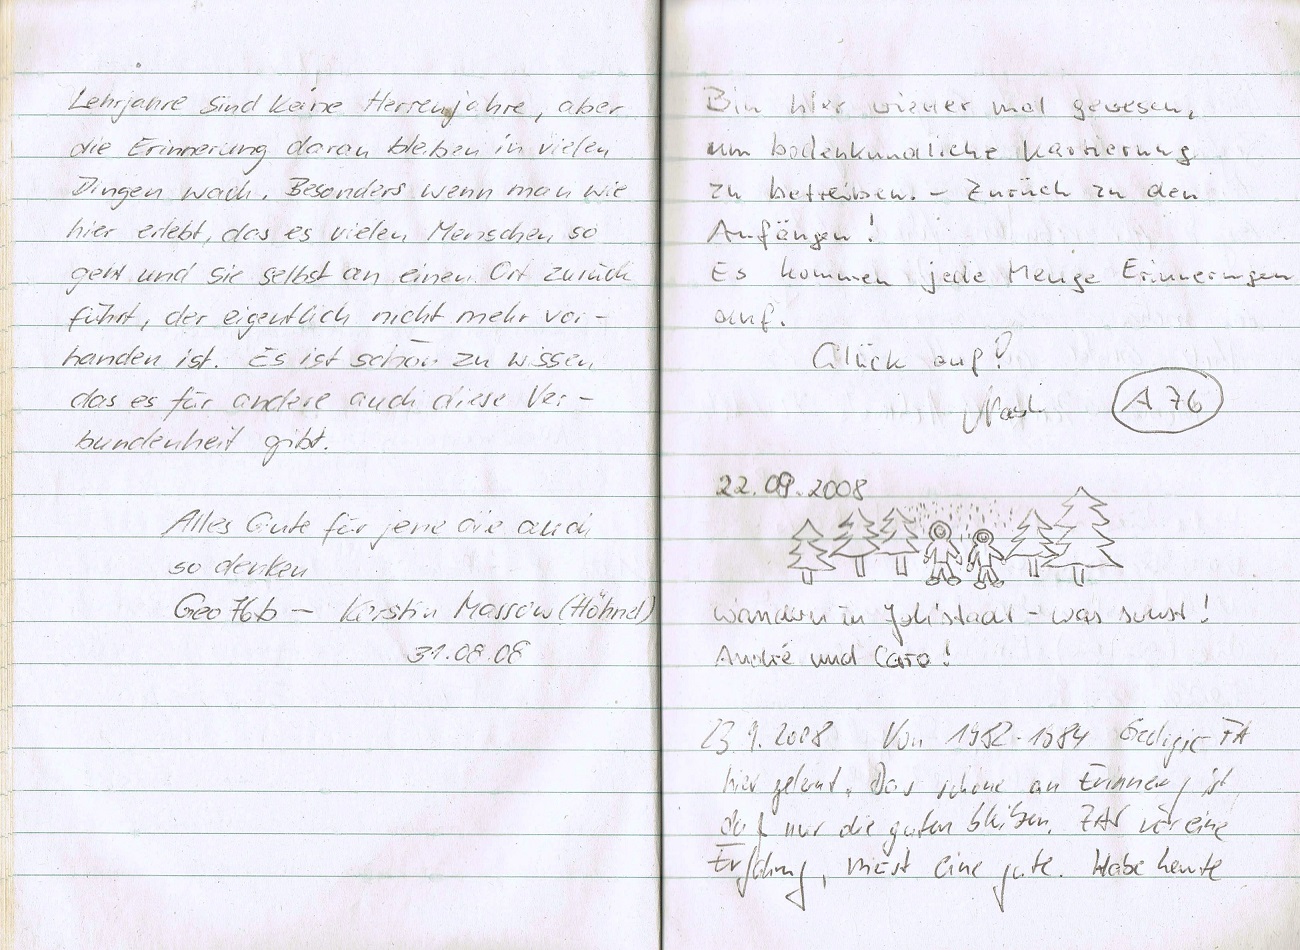 Lehrjahre sind keine Herrenjahre, aber
die Erinnerung daran bleiben in vielen
Dingen wach. Besonders wenn man wie
hier erlebt, das es vielen Menschen so
geht und sie selbst an einen Ort zurück
führt, der eigentlich nicht mehr vor-
handen ist. Es ist schön zu wissen
das es für andere auch diese Ver-
bundenheit gibt.
Alles Gute für jene die auch
so denken
Geo 76b - Kerstin Massow (Höhnel)
31.08.08
Bin hier wieder mal gewesen,
um bodenkundliche Kartierung
zu betreiben. - Zurück zu den
Anfängen!
Es kommen jede Menge Erinnerungen
auf.
Glück auf!
A 76
22.09.2008
Wandern in - was sonst!
André und Caro!
23.9.2008 Von 1982-1984 Geologie FA
hier gelernt. Das schöne an Erinnerung ist,
daß nur die guten bleiben. war eine
Erfahrung, meist eine gute. Habe heute